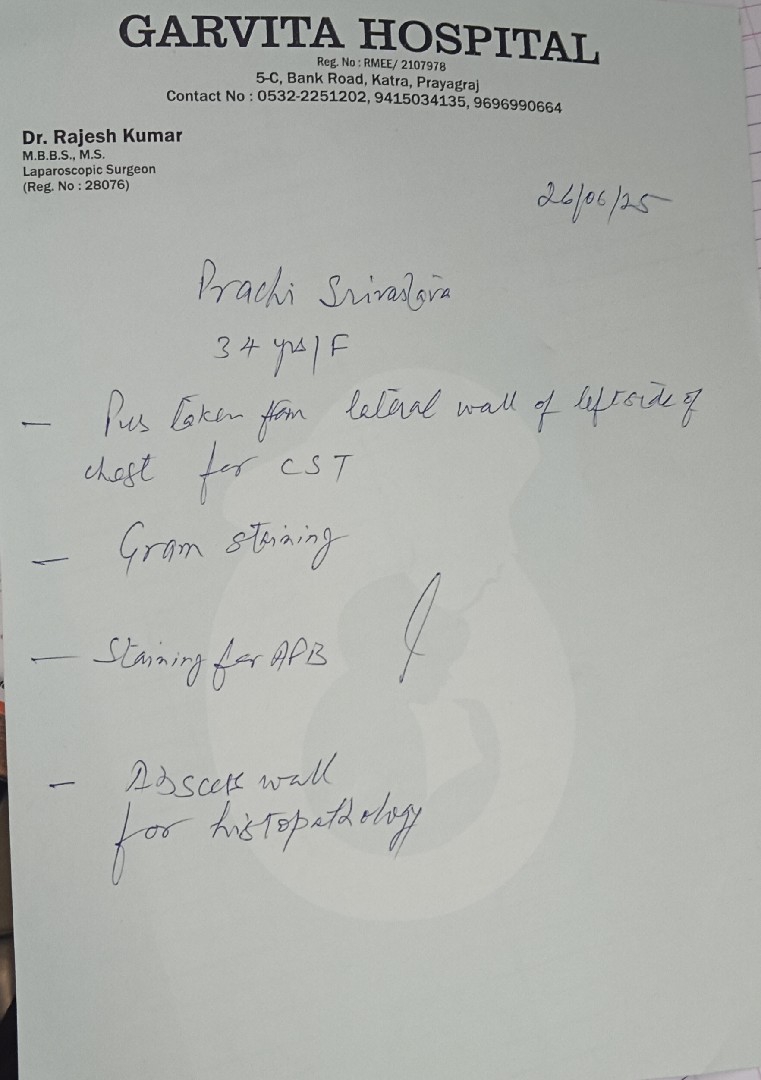 GARVITA HOSPITAL
Reg. No : RMEE/ 2107978
5-C, Bank Road, Katra, Prayagraj
Contact No : 0532-2251202, 9415034135, 9696990664
Dr. Rajesh Kumar
M.B.B.S., M.S.
Laparoscopic Surgeon
(Reg. No : 28076)
26/06/25
Prachi Srivastava
34 yrs/F
- Pus taken from lateral wall of left side of
chest for CST
- Gram staining
- Staining for AFB
- Abscess wall
for histopathology